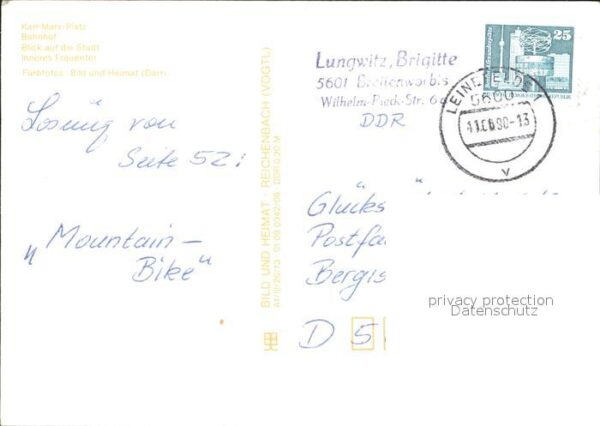 Karl-Marx-Platz
Bahnhof
Blick auf die Stadt
Inneres Frauentor
Farbfotos: Bild und Heimat (Darr)
Lösung von
Seite 52:
„Mountain-
Bike"
BILD UND HEIMAT · REICHENBACH (VOGTL)
Lungwitz, Brigitte
5601 Breitenworbis
Wilhelm-Pieck-Str.
DDR
25
LEINEFELDE 1
5600
v
Glücks
Postfa
Bergis
D 5
privacy protection
Datenschutz